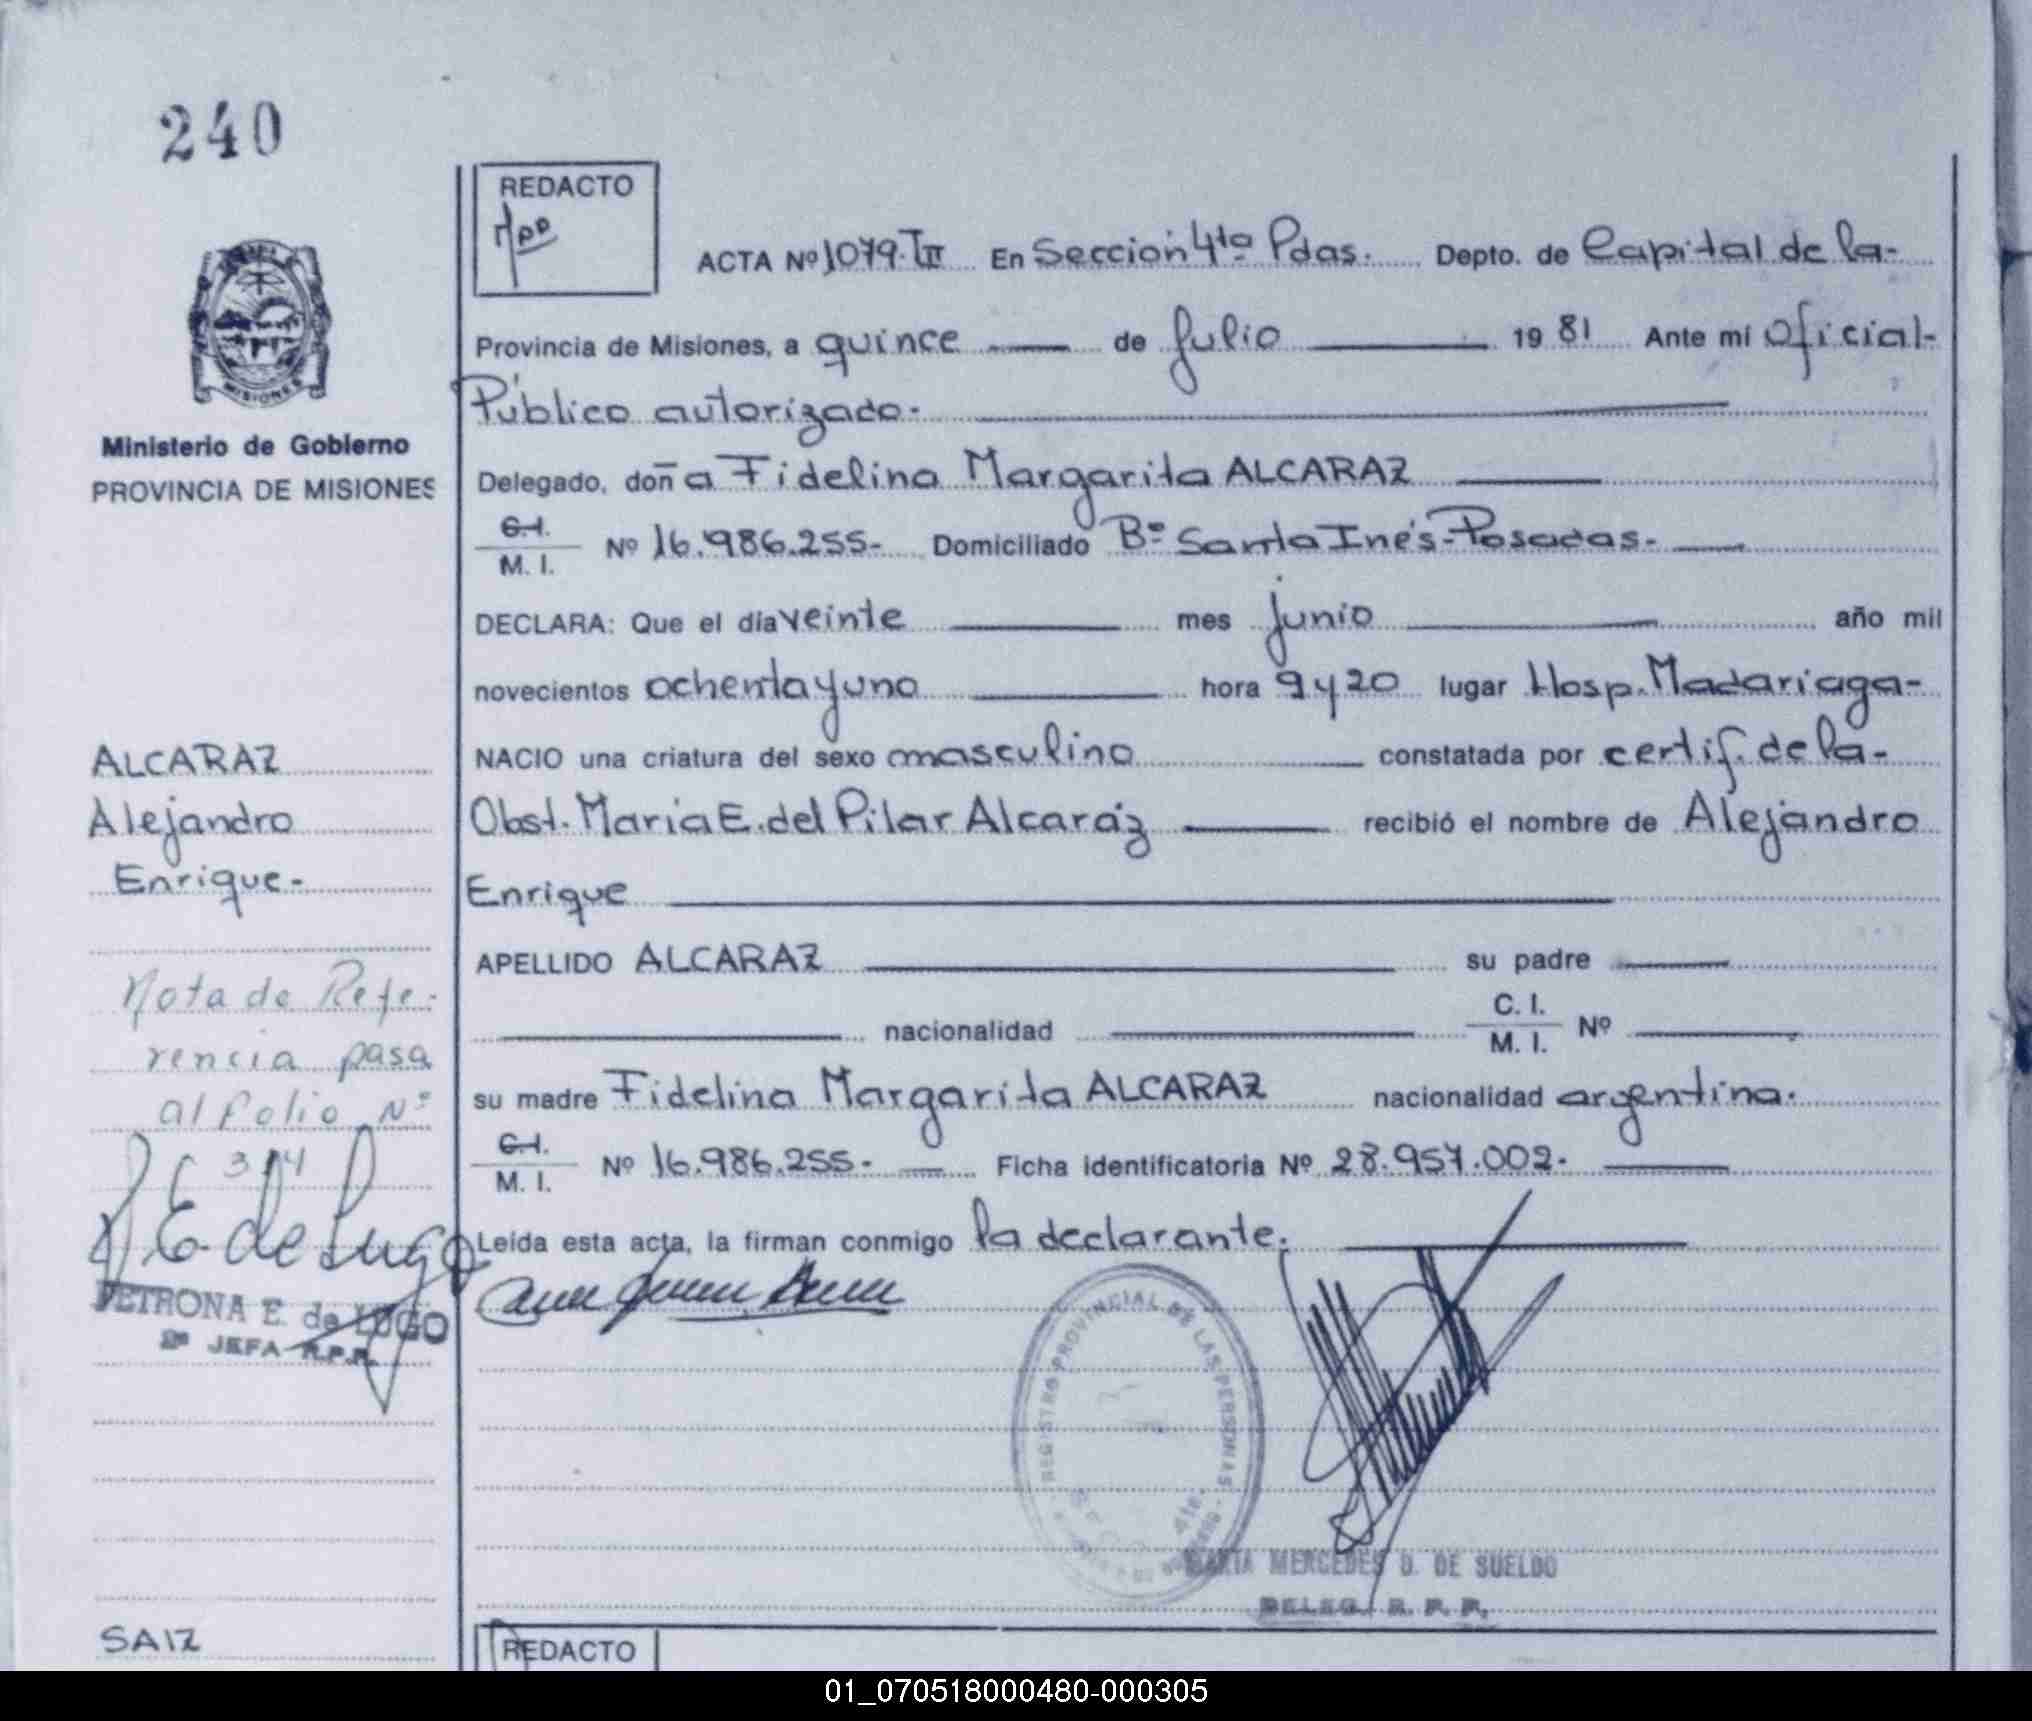 240
REDACTO
ACTA Nº 1079. TII En Sección 4ta Pdas. Depto. de Capital de la-
Provincia de Misiones, a quince de Julio 19 81 Ante mí Oficial-
Público autorizado.
Ministerio de Gobierno
PROVINCIA DE MISIONES
MISIONES
Delegado, doña Fidelina Margarita ALCARAZ
C.I.
M. I. Nº 16.986.255- Domiciliado Bº Santa Inés-Posadas.
DECLARA: Que el día veinte mes junio año mil
novecientos ochenta y uno hora 9 y 20 lugar Hosp. Madariaga-
NACIO una criatura del sexo masculino constatada por certif. de la-
Obst. María E. del Pilar Alcaráz recibió el nombre de Alejandro
Enrique
APELLIDO ALCARAZ su padre
nacionalidad C. I.
M. I. Nº
su madre Fidelina Margarita ALCARAZ nacionalidad argentina.
C.I.
M. I. Nº 16.986.255- Ficha identificatoria Nº 28.957.002-
Leída esta acta, la firman conmigo la declarante.
ALCARAZ
Alejandro
Enrique-
Nota de Refe-
rencia pasa
al folio Nº
314
P. E. de Lugo
PETRONA E. de LUGO
2ª JEFA R.P.P.
REGISTRO PROVINCIAL DE LAS PERSONAS
4ta.
MARIA MERCEDES D. DE SUELDO
DELEG. R. P. P.
SAIZ
REDACTO
01_070518000480-000305